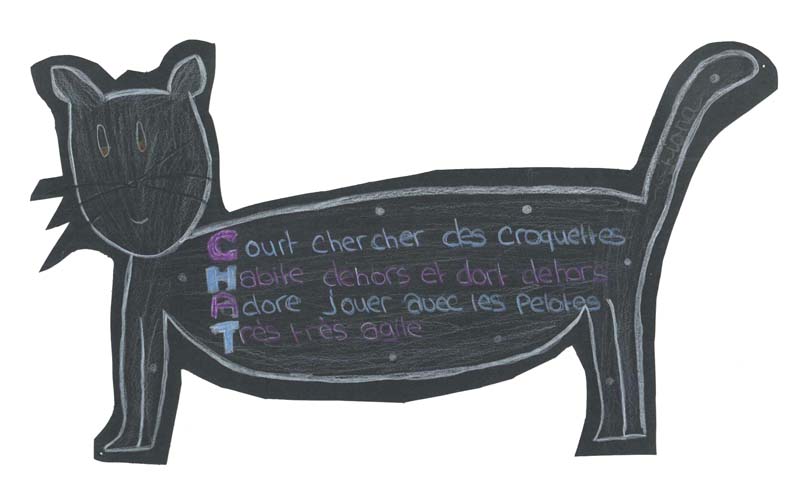 Fiona
Court chercher des croquettes
Habite dehors et dort dehors
Adore jouer avec les pelotes
Très très agile